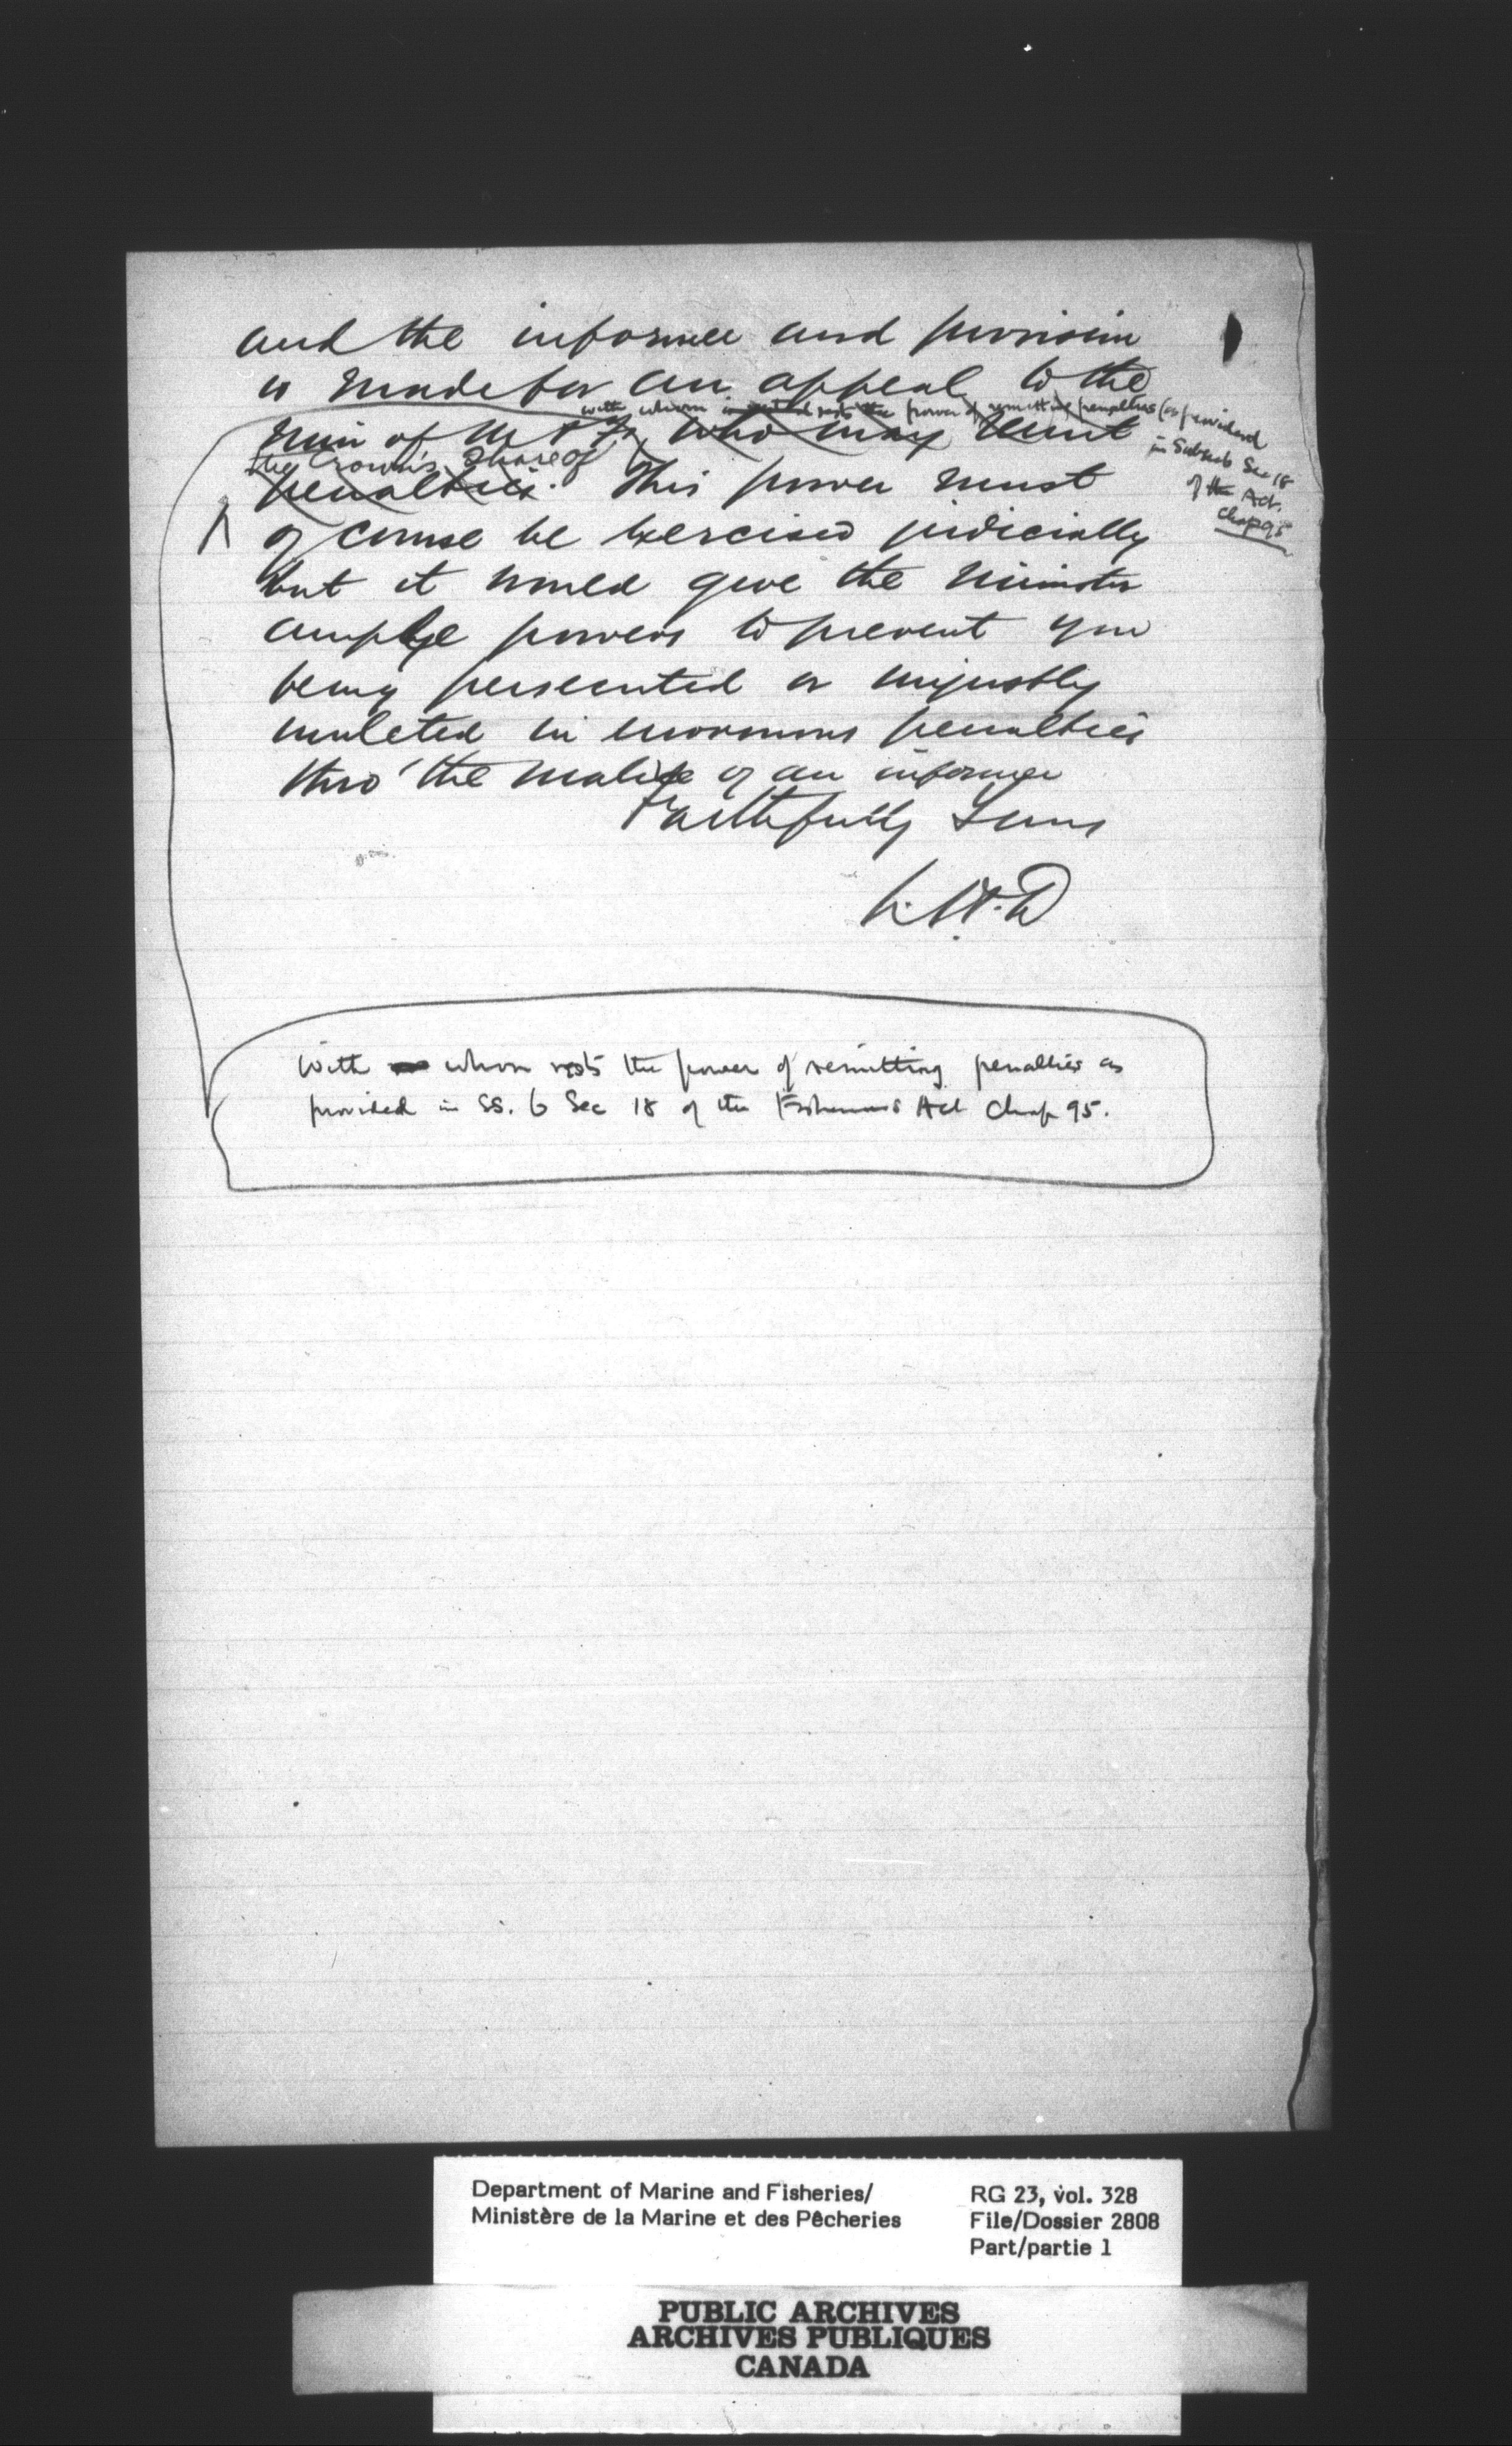 and the informer and provision
is made for an appeal to the
with whom is vested rests the power of remitting penalties (as provided
in Subsub Sec 18
of the Act.
Chap 95
Min of M & F, who may remit
the Crown's share of
penalties. This power must
of course be exercised judicially
but it would give the Minister
ample powers to prevent you
being persecuted or unjustly
mulcted in enormous penalties
thro' the malice of an informer
Faithfully Yours
L. H. D
With whom rests the power of remitting penalties as
provided in SS. 6 Sec 18 of the Fisheries Act Chap 95.
Department of Marine and Fisheries/
Ministère de la Marine et des Pêcheries
RG 23, vol. 328
File/Dossier 2808
Part/partie 1
PUBLIC ARCHIVES
ARCHIVES PUBLIQUES
CANADA